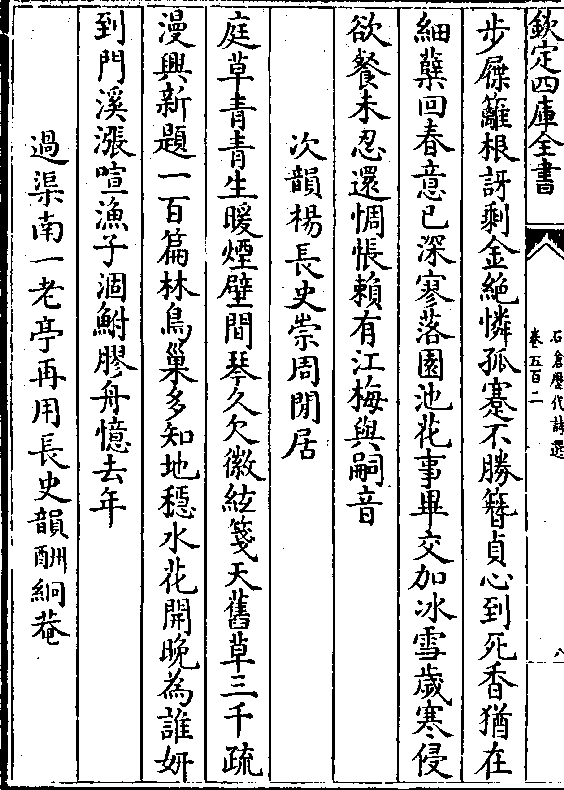 欽定四庫全書
石倉歷代詩選
卷五百二
八
步屧籬根訝剩金絶憐孤蹇不勝簪貞心到死香猶在
細蘖回春意已深寥落園池花事畢交加冰雪歲寒侵
欲餐未忍還惆悵賴有江梅與嗣音
次韻楊長史崇周閒居
庭草青青生暖煙壁間琴久欠徽絃箋天舊草三千疏
漫興新題一百篇林鳥巢多知地穩水花開晚為誰妍
到門溪漲喧漁子涸鮒膠舟憶去年
過渠南一老亭再用長史韻酬絅菴